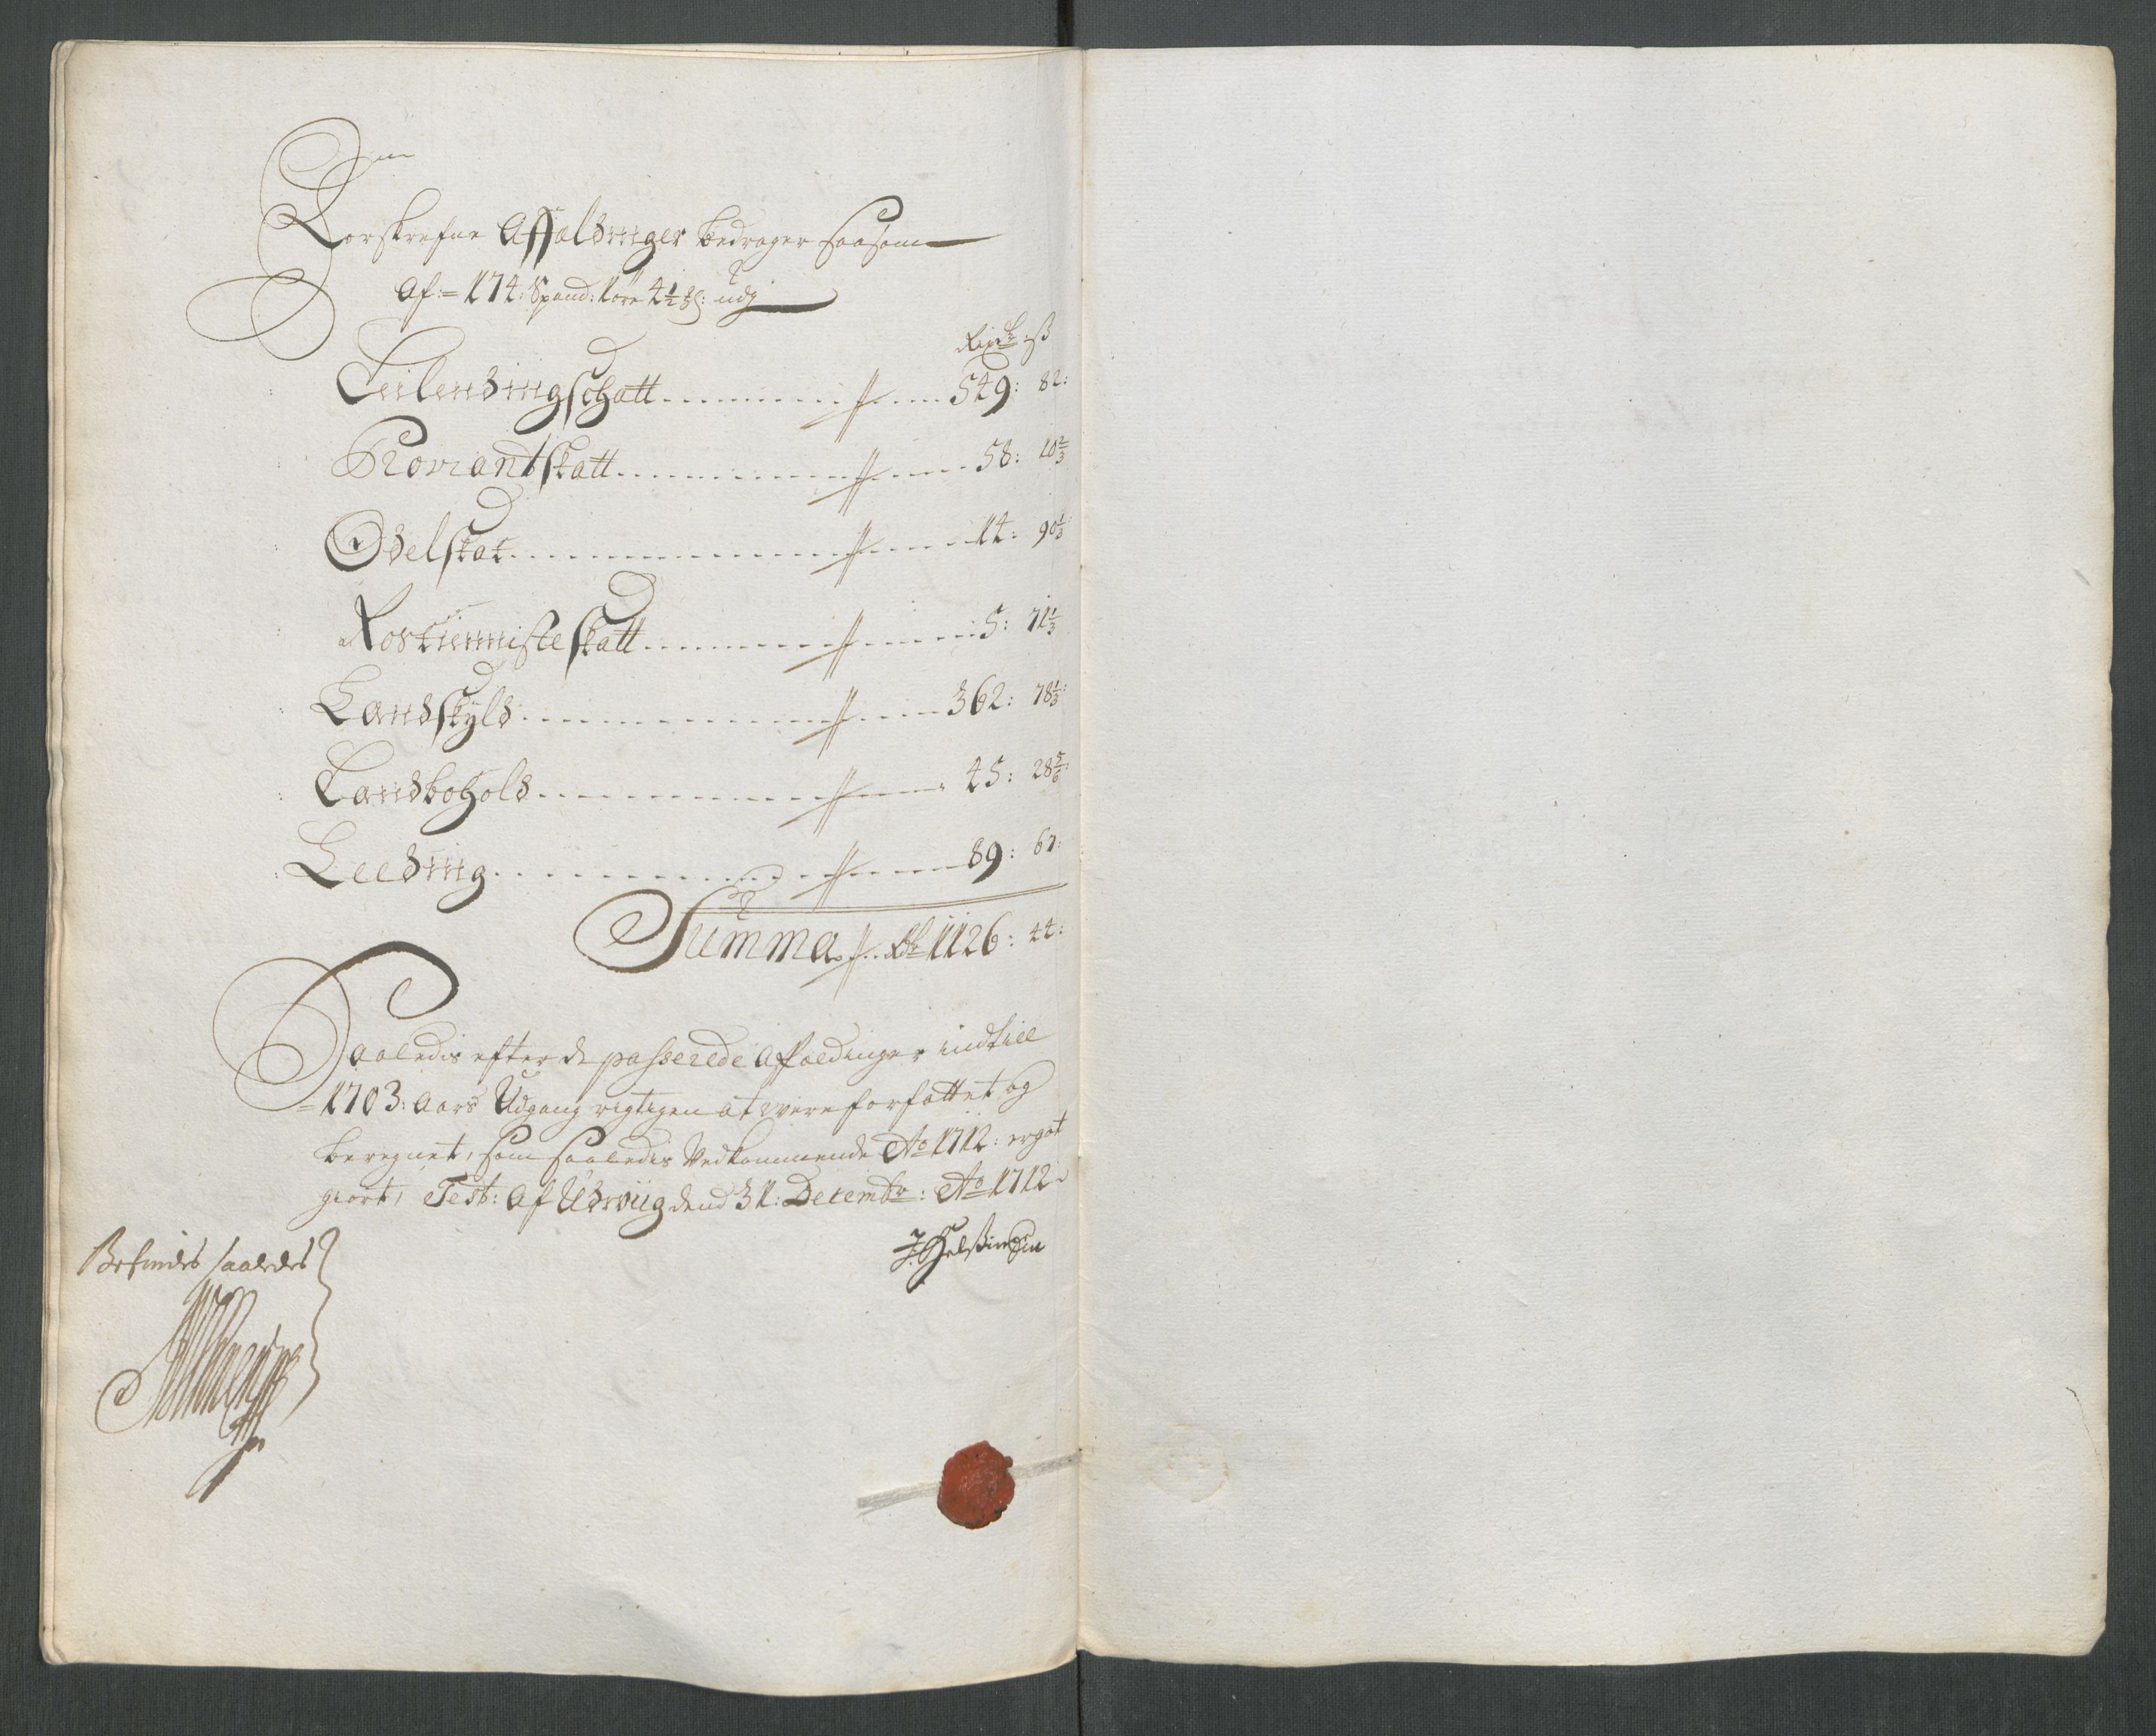 Forskrefne Affældninger bedrager saasom
Af:= 174: Spand: 1 øre 4½ ℳl: udj
Rixdr: ß
Leilendingschatt ........ 549: 82:
Proviantskatt ........ 58: 10⅔
Odelskat ........ 14: 90⅓
Rostienniste skatt ........ 5: 71⅓
Landskyld ........ 362: 78⅓:
Landbohold ........ 45: 28⅚:
Leeding ........ 89: 67:
Summa .. Rdr 1126: 44:
Saaledis efter de passerede Affældinger indtill
= 1703: Aars Udgang rigtigen at were forfattet og
beregnet, som saaledis Vedkommende Ao 1712: ergot
giort, Test: Af Udwiig dend 31: Decembr: Ao 1712
Befindes saaledes